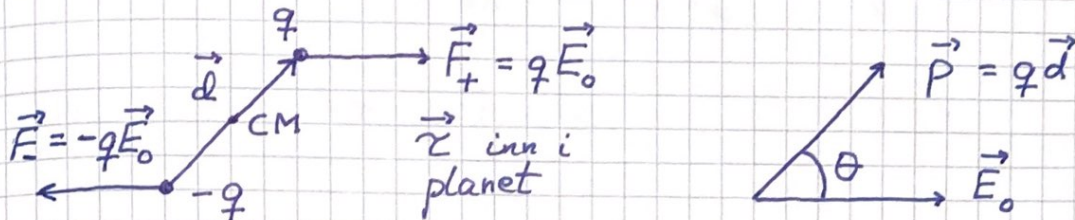 q
d⃗
F⃗₊ = qE⃗₀
F⃗₋ = -qE⃗₀
CM
-q
τ⃗ inn i
planet
p⃗ = qd⃗
θ
E⃗₀